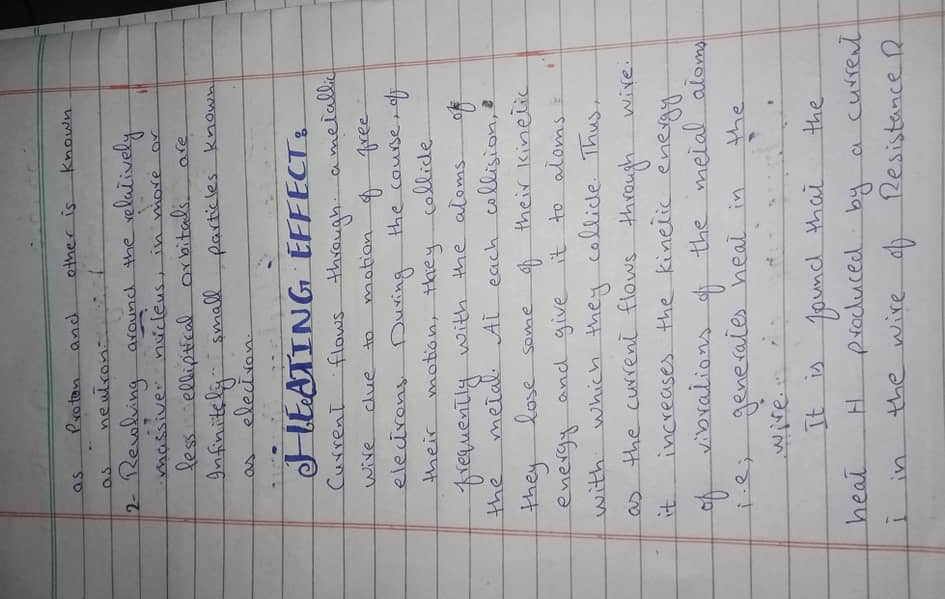 as Proton and other is known
as neutron.
2- Resolving around the relatively
massive nucleus, in more or
less elliptical orbitals are
Infinitely small particles known
as electron.
HEATING EFFECT:
Current flows through a metallic
wire due to motion of free
electrons. During the course, of
their motion, they collide
frequently with the atoms of
the metal. At each collision,
they lose some of their kinetic
energy and give it to atoms
with which they collide. Thus,
as the current flows through wire.
it increases the kinetic energy
of vibrations of the metal atoms
i.e, generates heat in the
wire.
It is found that the
heat H produced by a current
i in the wire of Resistance R